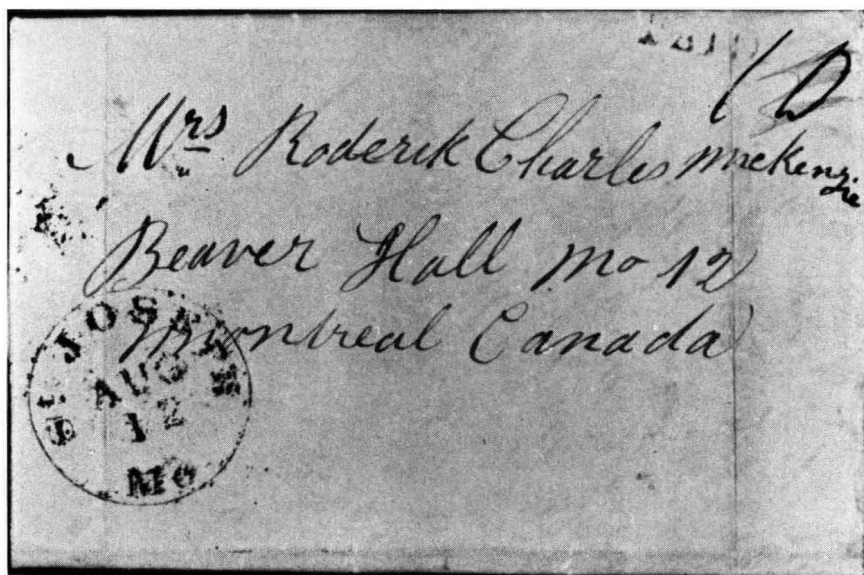 PAID
10
Mrs Roderik Charles McKenzie
Beaver Hall No 12
Montreal Canada
ST. JOSEPHS
AUG
12
Mo